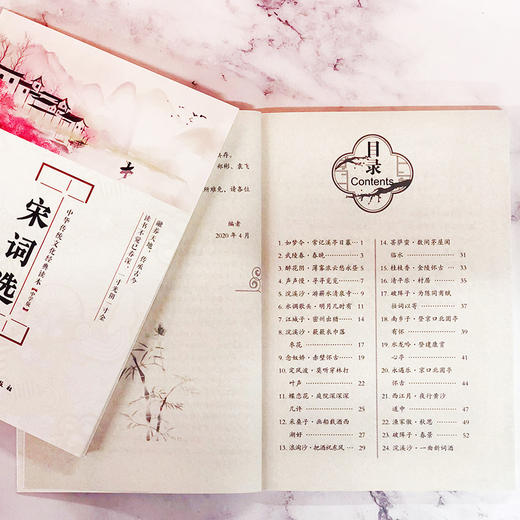 宋词选
中华传统文化经典读本
融吞天地，传承古今
读书不觉已春深，一寸光阴一寸金
编者
2020年4月
目录
Contents
1. 如梦令·常记溪亭日暮 1
2. 武陵春·春晚 3
3. 醉花阴·薄雾浓云愁永昼 5
4. 声声慢·寻寻觅觅 7
5. 浣溪沙·游蕲水清泉寺 9
6. 水调歌头·明月几时有 11
7. 江城子·密州出猎 14
8. 浣溪沙·簌簌衣巾落
枣花 17
9. 念奴娇·赤壁怀古 19
10. 定风波·莫听穿林打
叶声 22
11. 蝶恋花·庭院深深深
几许 25
12. 采桑子·画船载酒西
湖好 27
13. 浪淘沙·把酒祝东风 29
14. 菩萨蛮·数间茅屋闲
临水 31
15. 桂枝香·金陵怀古 33
16. 清平乐·村居 35
17. 破阵子·为陈同甫赋
壮词以寄 37
18. 南乡子·登京口北固亭
有怀 39
19. 水龙吟·登建康赏
心亭 41
20. 永遇乐·京口北固亭
怀古 44
21. 西江月·夜行黄沙
道中 47
22. 渔家傲·秋思 49
23. 破阵子·春景 51
24. 浣溪沙·一曲新词酒